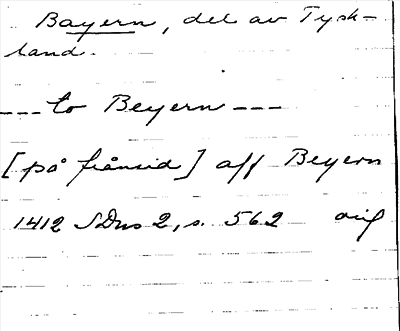 Bayern, del av Tysk-
land.
--- to Beyern ---
[på frånsid] aff Beyern
1412 SDns 2, s. 562 orig